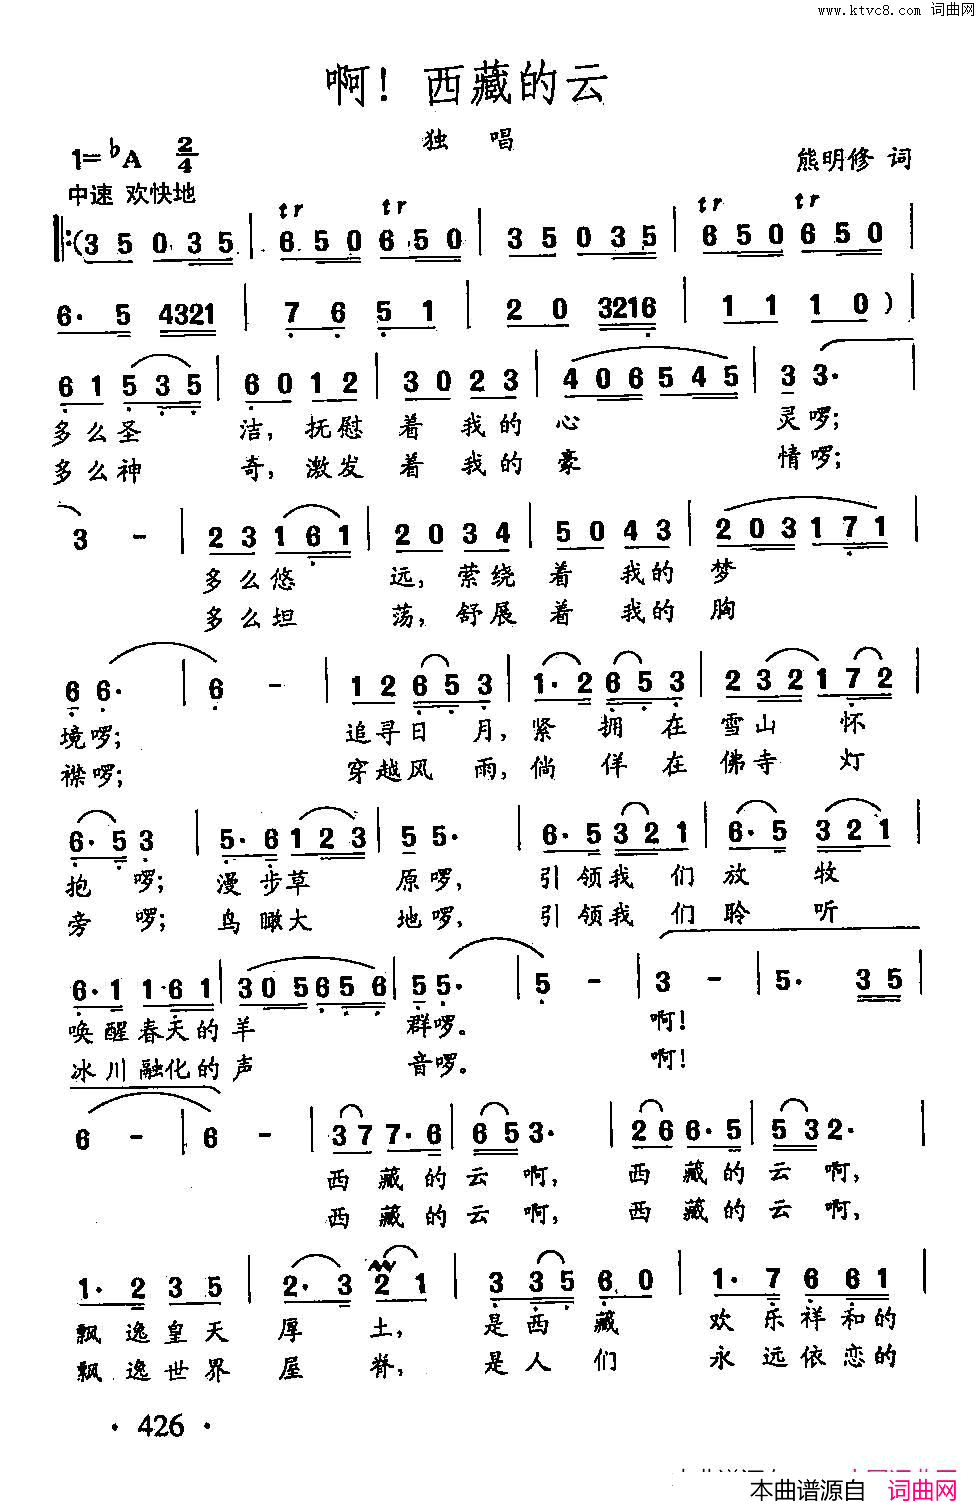 www.ktvc8.com 词曲网
啊！西藏的云
独 唱
1=♭A 2/4
熊明修 词
中速 欢快地
tr tr tr tr
(3 5 0 3 5 | 6 5 0 6 5 0 | 3 5 0 3 5 | 6 5 0 6 5 0 |
6· 5 4321 | 7 6 5 1 | 2 0 3216 | 1 1 1 0 )|
6 1 5 3 5 | 6 0 1 2 | 3 0 2 3 | 4 0 6 5 4 5 | 3 3· |
多么圣 洁，抚慰 着 我的 心 灵啰；
多么神 奇，激发 着 我的 豪 情啰；
3 - | 2 3 1 6 1 | 2 0 3 4 | 5 0 4 3 | 2 0 3 1 7 1 |
多么悠 远，萦绕 着 我的 梦
多么坦 荡，舒展 着 我的 胸
6 6· | 6 - | 1 2 6 5 3 | 1· 2 6 5 3 | 2 3 2 1 7 2 |
境啰； 追寻日 月，紧 拥 在 雪山 怀
襟啰； 穿越风 雨，倘 佯 在 佛寺 灯
6· 5 3 | 5· 6 1 2 3 | 5 5· | 6· 5 3 2 1 | 6· 5 3 2 1 |
抱 啰；漫步草 原啰，引领我 们放 牧
旁 啰；鸟瞰大 地啰，引领我 们聆 听
6· 1 1 6 1 | 3 0 5 6 5 6 | 5 5· | 5 - | 3 - | 5· 3 5 |
唤醒春天的羊 群啰。 啊！
冰川融化的声 音啰。 啊！
6 - | 6 - | 3 7 7· 6 | 6 5 3· | 2 6 6· 5 | 5 3 2· |
西 藏 的 云 啊， 西 藏的 云 啊，
西 藏 的 云 啊， 西 藏的 云 啊，
1· 2 3 5 | 2· 3 2 1 | 3 3 5 6 0 | 1· 7 6 6 1 |
飘逸皇天 厚 土， 是西 藏 欢 乐祥和的
飘逸世界 屋 脊， 是人 们 永 远依恋的
· 426 ·
本曲谱源自 词曲网